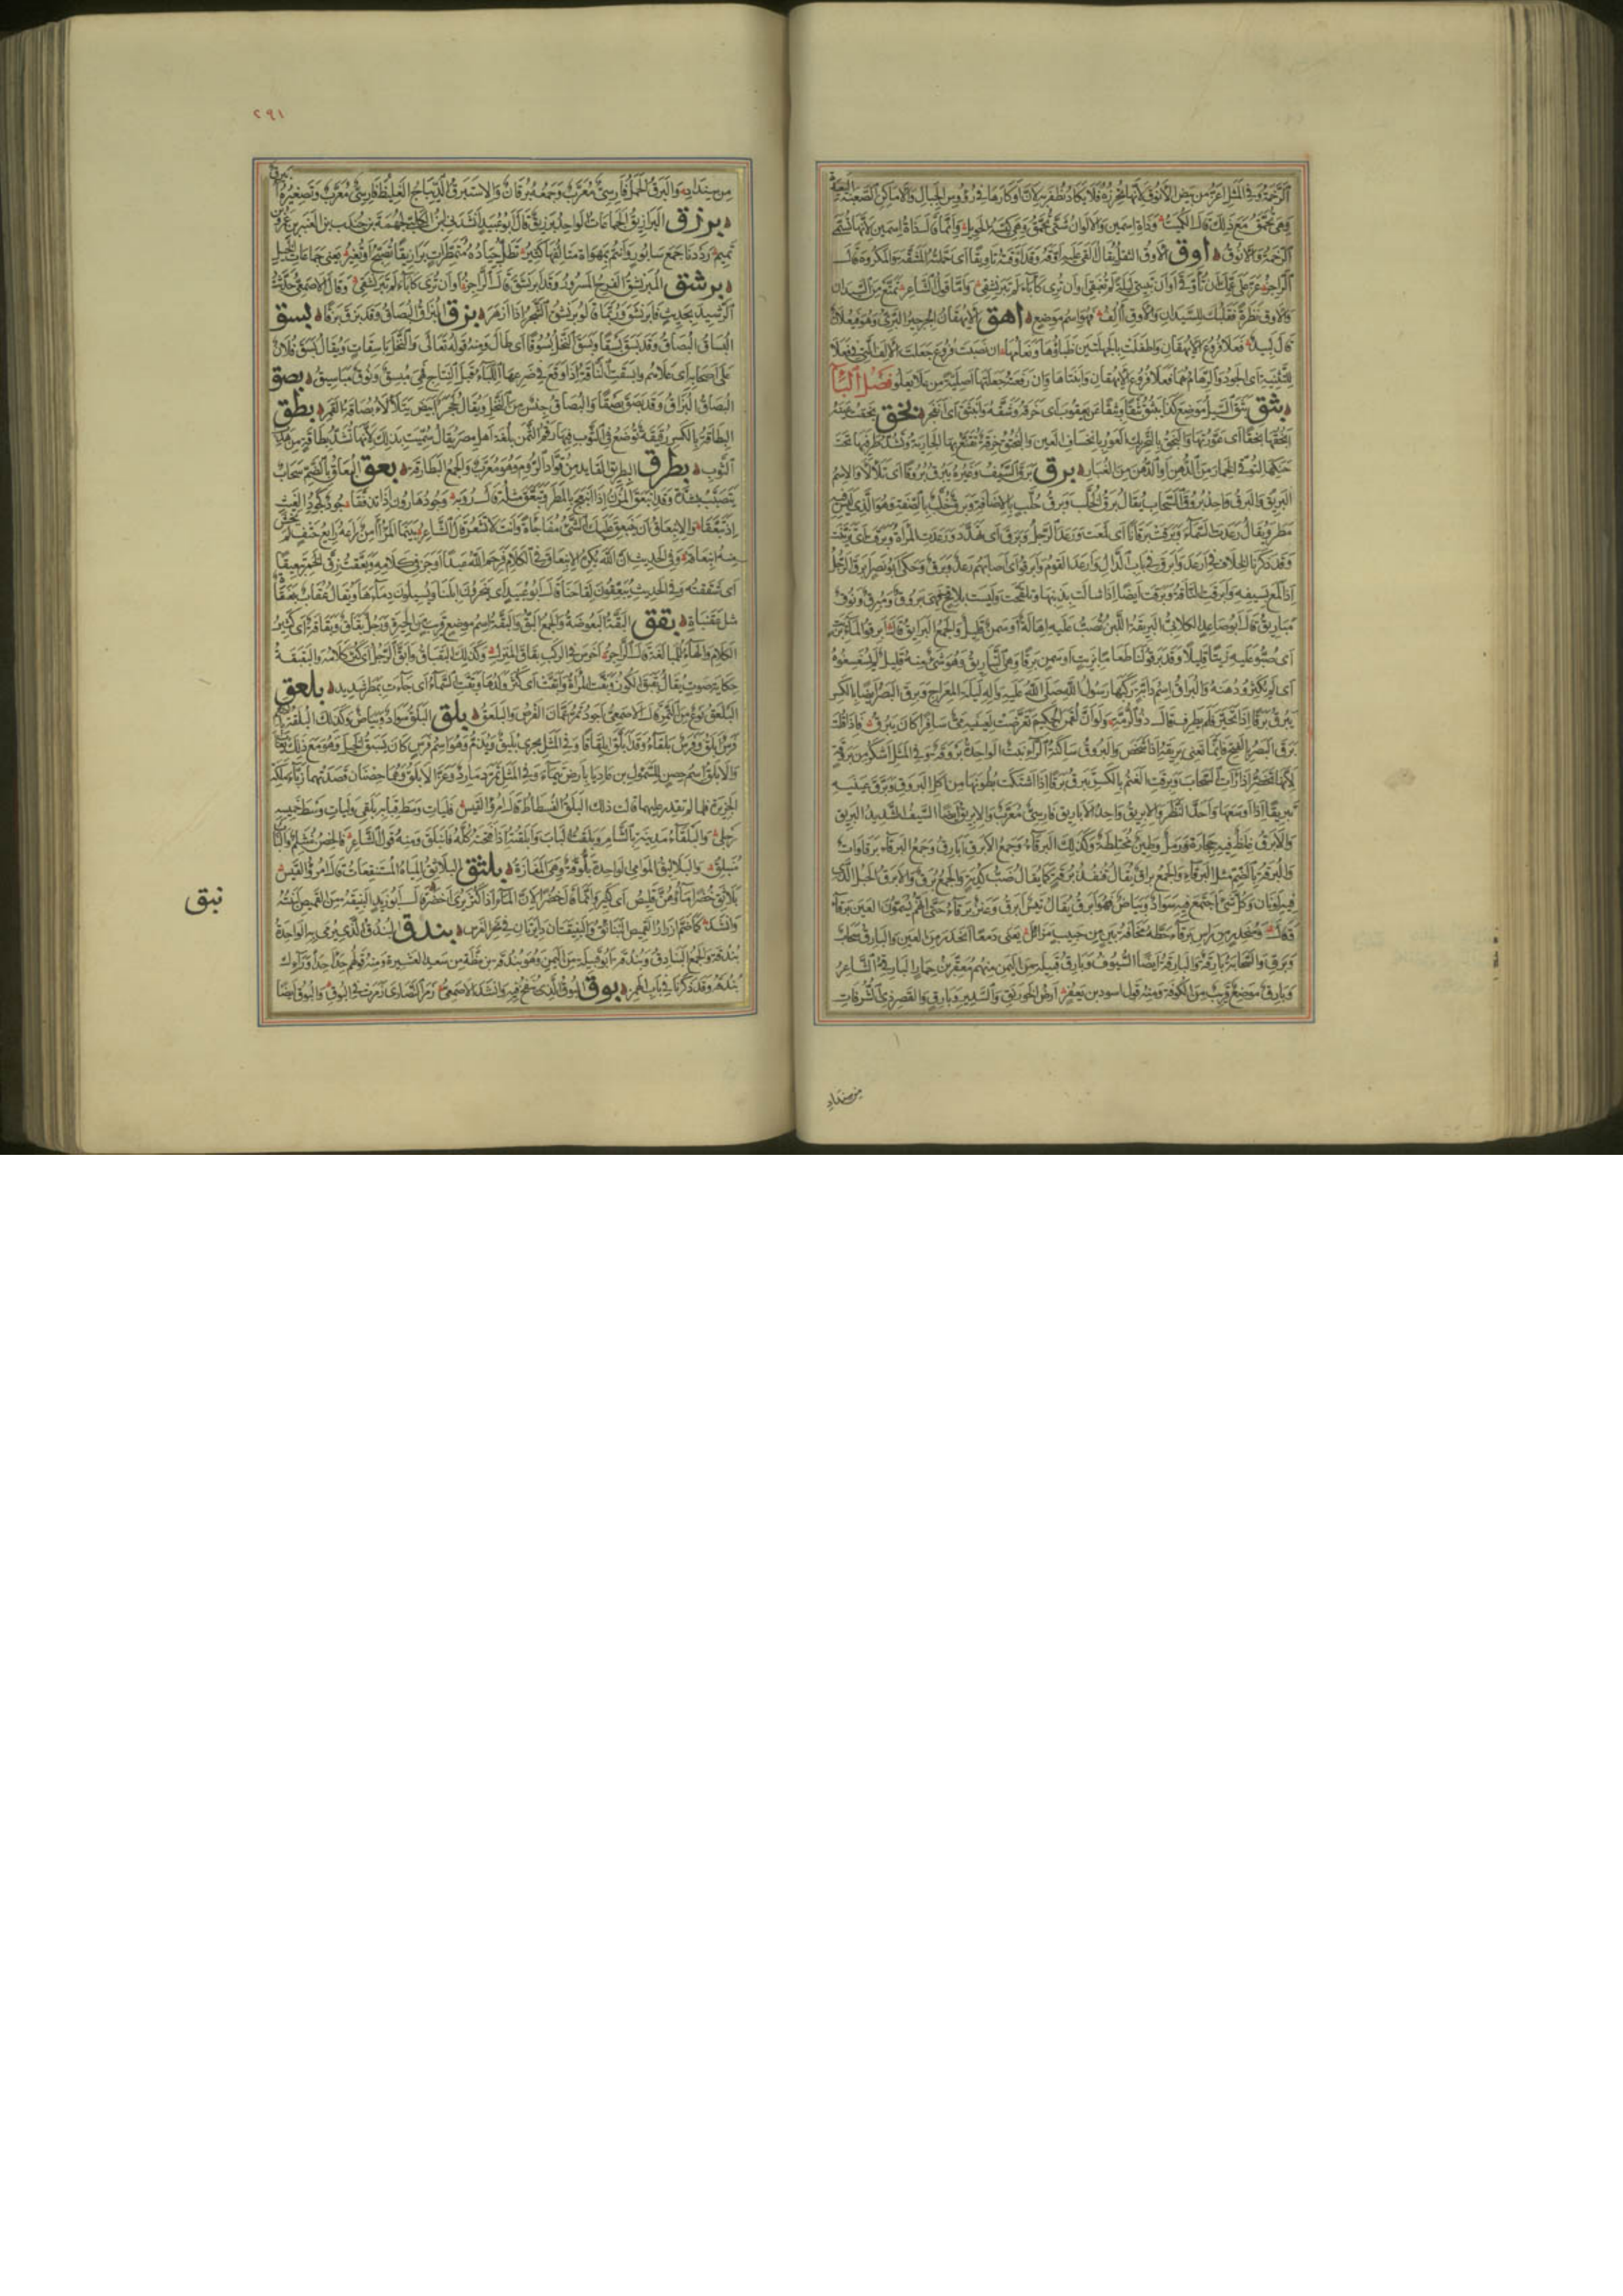 الرخمة وفي المثل أعز من بيض الأنوق لأنها تحرزه فلا يكاد يظفر به لأن أوكارها في رؤوس الجبال والأماكن الصعبة البعيدة
وهي تحمق مع ذلك قال الكميت وذات اسمين والألوان شتى تحمق وهي كيسة الحويل وإنما قال ذات اسمين لأنها تسمى
الرخمة والأنوق أوق الأوق الثقل يقال ألقى عليه أوقه وقد أوقته تأويقا أي حملته المشقة والمكروه قال
الراجز عز على عمك أن تؤوقي أو أن تبيتي ليلة لم تغبقي أو أن تري كأباء لم تبرنشقي وأما قول الشاعر تمتع من السيدان
والأوق نظرة فقلبك للسيدان والأوق آلف فهو اسم موضع أهق الأيهقان الجرجير البري وهو فيعلان
قال لبيد فعلا فروع الأيهقان وأطفلت بالجلهتين ظباؤها ونعامها إن نصبت فروع جعلت الألف التي في فعلا
للتثنية أي الجود والرهام هما فعلا فروع الأيهقان وأنبتاها وإن رفعته جعلتها أصلية من علا يعلو فصل الباء
بثق بثق السيل موضع كذا يبثق بثقا وبثقا عن يعقوب أي خرقه وشقه وانبثق أي انفجر بخق بخقت عينه
أبخقها بخقا أي عورتها والبخق بالتحريك العور بانخساف العين والبخنق خرقة تقنع بها الجارية وتشد طرفيها تحت
حنكها لتوقي الخمار من الدهن أو الدهن من الغبار برق برق السيف وغيره يبرق بروقا أي تلألأ والاسم
البريق والبرق واحد بروق السحاب يقال برق الخلب وبرق خلب بالإضافة وبرق خلب بالصفة وهو الذي ليس فيه
مطر ويقال رعدت السماء وبرقت برقانا أي لمعت ورعد الرجل وبرق أي تهدد ورعدت المرأة وبرقت أي تزينت
وقد ذكرنا الخلاف في أرعد وأبرق في باب الدال وأرعد القوم وأبرقوا أي أصابهم رعد وبرق وحكى أبو نصر أبرق الرجل
إذا لمع بسيفه وأبرقت الناقة وبرقت أيضا إذا شالت بذنبها وتلقحت وليست بلاقح فهي بروق ومبرق ونوق
مباريق قال أبو صاعد الكلابي البريقة اللبن تصب عليه إهالة أو سمن قليل والجمع البرايق قال أبرقوا الماء بزيت
أي صبوا عليه زيتا قليلا وقد برقوا لنا طعاما بزيت أو سمن برقا وهي التباريق وهو شيء منه قليل لم يسغسغوه
أي لم يكثروا دهنه والبراق اسم دابة ركبها رسول الله صلى الله عليه وآله ليلة المعراج وبرق البصر أيضا بالكسر
يبرق برقا إذا تحير فلم يطرف قال ذو الرمة ولو أن لقمن الحكيم تعرضت لعينيه مي سافرا كاد يبرق فإذا قلت
برق البصر بالفتح فإنما تعني بريقه إذا شخص والبروق ساكنة الراء نبت الواحدة بروقة وفي المثل أشكر من بروقة
لأنها تخضر إذا رأت السحاب وبرقت الغنم بالكسر تبرق برقا إذا اشتكت بطونها من أكل البروق وبرق عينيه
تبريقا إذا أوسعهما وأحد النظر والإبريق واحد الأباريق فارسي معرب والإبريق أيضا السيف الشديد البريق
والأبرق غلظ فيه حجارة ورمل وطين مختلطة وكذلك البرقاء وجمع الأبرق أبارق وجمع البرقاء برقاوات
والبرقة بالضم مثل البرقاء والجمع براق يقال قنفذ برقة كما يقال ضب كدية والجمع برق والأبرق الحبل الذي
فيه لونان وكل شيء اجتمع فيه سواد وبياض فهو أبرق يقال تيس أبرق وعنز برقاء حتى إنهم يسمون العين برقاء
قال ومنحدر من رأس برقاء حطه مخافة بين من حبيب مزايل يعني دمعا انحدر من العين والبارق سحاب
وبرق والسحابة بارقة والبارقة أيضا السيوف وبارق قبيلة من اليمن منهم معقر بن حمار البارقي الشاعر
وبارق موضع قريب من الكوفة ومنه قول أسود بن يعفر أرض الخورنق والسدير وبارق والقصر ذي الشرفات
من سنداد
٢٩١
من سنداد والبرق الحمل فارسي معرب وجمعه برقان والإستبرق الديباج الغليظ فارسي معرب وتصغيره أبيرق
برزق البرازيق الجماعات الواحد برزيق قال أبو عبيد أنشدني ابن الكلبي لجهمة بن جندب بن العنبر بن عمرو بن
تميم رددنا جمع سابور وأنتم بمهواة متالفها كثير تظل جياده متمطرات برازيقا تصبح أو تغير يعني جماعات الخيل
برشق المبرنشق الفرح المسرور وقد ابرنشق قال الراجز أو أن تري كأباء لم تبرنشقي وقال الأصمعي حدثت
الرشيد بحديث فابرنشق وربما قالوا ابرنشق الشجر إذا أزهر بزق البزاق البصاق وقد بزق بزقا بسق
البساق البصاق وقد بسق بسقا وبسق النخل بسوقا أي طال ومنه قوله تعالى والنخل باسقات ويقال بسق فلان
على أصحابه أي علاهم وأبسقت الناقة إذا وقع في ضرعها اللباء قبل النتاج فهي مبسق ونوق مباسيق بصق
البصاق البزاق وقد بصق بصقا والبصاق جنس من النخل ويقال لحجر أبيض يتلألأ بصاقة القمر بطق
البطاقة بالكسر رقيقة توضع في الثوب فيها رقم الثمن بلغة أهل مصر يقال سميت بذلك لأنها تشد بطاقة من هدب
الثوب بطرق البطريق القايد من قواد الروم وهو معرب والجمع البطارقة بعق البعاق بالضم سحاب
يتصبب بشدة وقد انبعق المزن إذا انبعج بالمطر وتبعق مثله قال رؤبة وجود هارون إذا تدفقا جود كجود الغيث
إذ تبعقا والانبعاق أن ينبعق عليك الشيء مفاجأة وأنت لا تشعر قال الشاعر بينما المرء آمن راعه رايع حتف لم يخش
منه انبعاقه وفي الحديث إن الله يكره الانبعاق في الكلام فرحم الله عبدا أوجز في كلامه وبعقت زق الخمر تبعيقا
أي شققته وفي الحديث يبعقون لقاحنا قال أبو عبيد أي ينحرون إبلنا ويسيلون دماءها ويقال عقاب بعنقاة
مثل عقنباة بقق البقة البعوضة والجمع البق والبقة اسم موضع قريب من الحيرة ورجل بقاق وبقاقة أي كثير
الكلام والهاء للمبالغة قال الراجز أخرس في الركب بقاق المنزل وكذلك البقباق وأبق الرجل أي كثر كلامه والبقبقة
حكاية صوت يقال بقبق الكوز وبقت المرأة وأبقت أي كثر ولدها وبقت السماء أي جاءت بمطر شديد بلعق
البلعق نوع من التمر قال الأصمعي أجود تمر عمان الفرض والبلعق بلق البلق سواد وبياض وكذلك البلقة بالضم
فرس أبلق وفرس بلقاء وقد ابلق ابلقاقا وفي المثل يجري بليق ويذم وهو اسم فرس كان يسبق الخيل وهو مع ذلك يعاب
والأبلق اسم حصن للسموءل بن عاديا بأرض تيماء وفي المثل تمرد مارد وعز الأبلق وهما حصنان قصدتهما زباء ملكة
الجزيرة فلما لم تقدر عليهما قالت ذلك البلق الفسطاط قال امرؤ القيس فليأت وسط قبابه بلقي وليأت وسط خميسه
رجلي والبلقاء مدينة بالشام وبلقت الباب وأبلقته إذا فتحته كله فانبلق ومنه قول الشاعر فالحصن منثلم والباب
منبلق والبلاليق الموامي الواحدة بلوقة وهي المفازة بلثق البلاثق المياه المستنقعات قال امرؤ القيس
بلاثق خضرا ماؤهن قليص أي كثير وإنما قال خضرا لأن الماء إذا كثر يرى أخضر قال أبو زيد البنيقة من القميص لبنته
وأنشد كما ضم أزرار القميص البنايق والبنيقتان دايرتان في نحر الفرس بندق البندق الذي يرمى به الواحدة
بندقة والجمع البنادق وبندقة أبو قبيلة من اليمن وهو بندقة بن مظة من سعد العشيرة ومنه قولهم حدأ حدأ وراءك
بندقة وقد ذكرناه في باب الهمز بوق البوق الذي ينفخ فيه وأنشد الأصمعي زمر النصارى زمرت في البوق والبوق أيضا
نبق